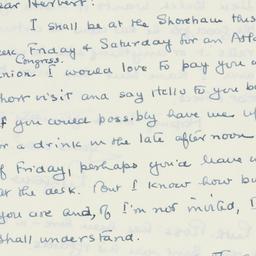 ear Herbert:
I shall be at the Shoreham this
Friday & Saturday for an Atla
Congress.
nion. I would love to pay you a
hort visit and say Hello to you bo
f you could possibly have me u
or a drink in the late afternoon
f Friday, perhaps you'd leave w
at the desk. But I know how bu
you are and, if I'm not invited, I
shall understand.